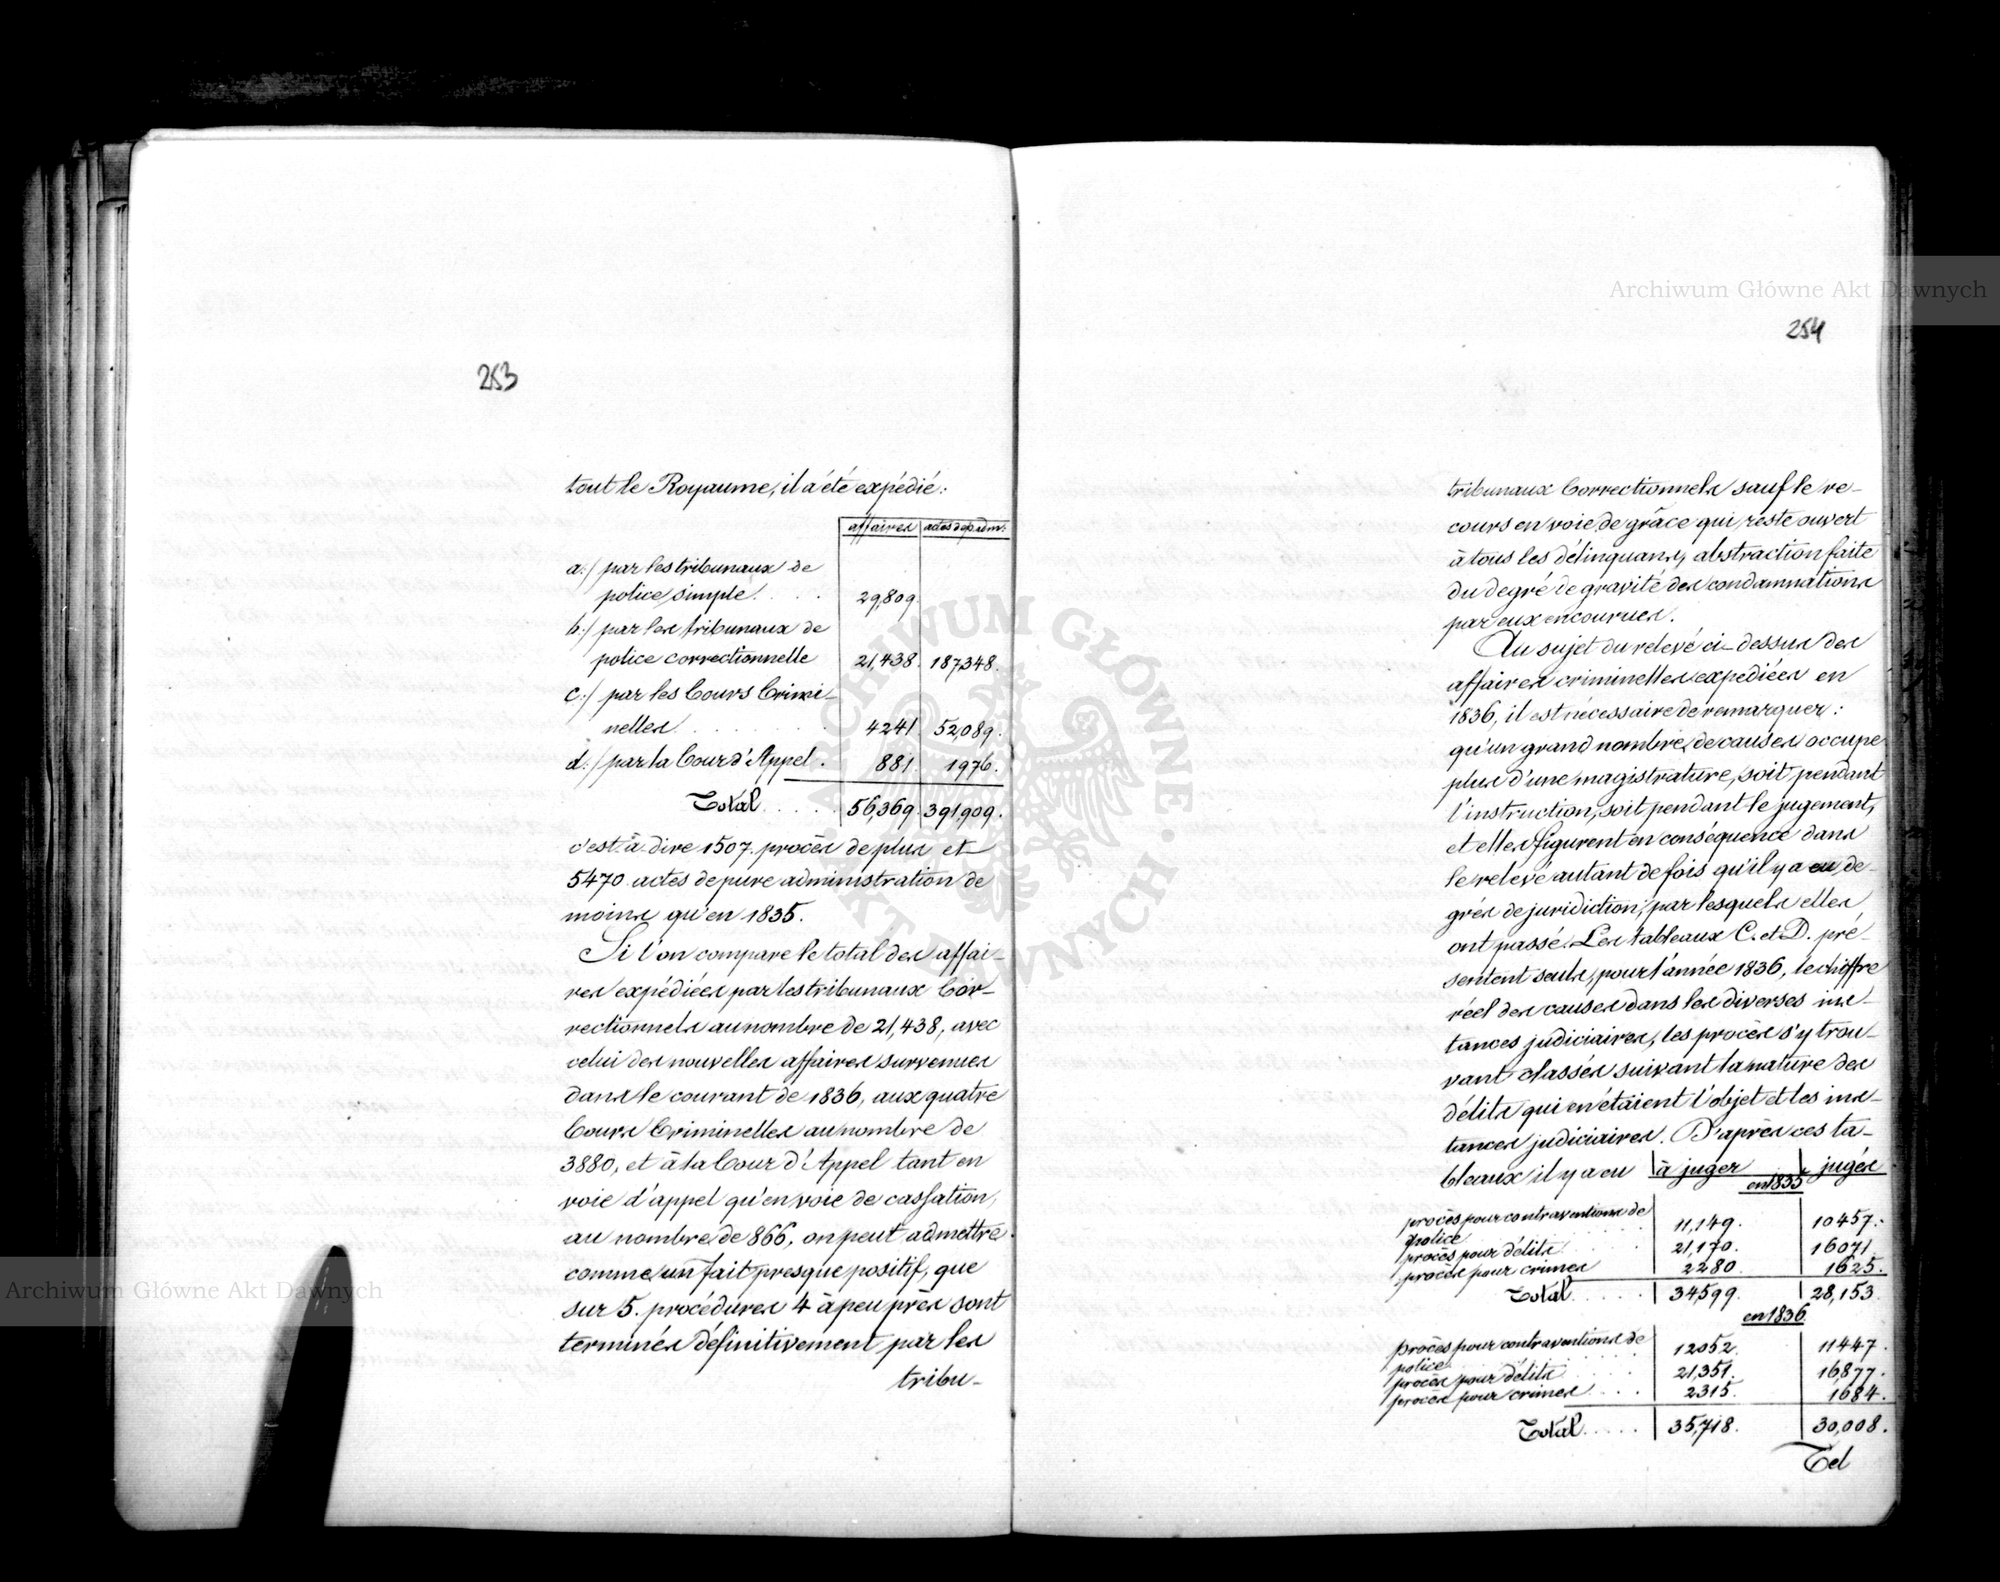 253
tout le Royaume, il a été expédié:
affaires actes de p. adm:
a:/ par les tribunaux de
police simple. . . . 29,809.
b:/ par les tribunaux de
police correctionnelle 21,438. 187,348.
c:/ par les Cours Crimi-
nelles. . . . . . . 4241. 52,089.
d:/ par la Cour d'Appel . 881. 1976.
Total . . . . . 56,369. 391,909.
c'est à dire 1507. procès de plus et
5470 actes de pure administration de
moins qu'en 1835.
Si l'on compare le total des affai-
res expédiées par les tribunaux Cor-
rectionnels au nombre de 21,438, avec
celui des nouvelles affaires survenues
dans le courant de 1836, aux quatre
Cours Criminelles au nombre de
3880, et à la Cour d'Appel tant en
voie d'appel qu'en voie de cassation,
au nombre de 866, on peut admettre
comme un fait presque positif, que
sur 5. procédures 4 à peu près sont
terminés définitivement par les
tribu-
254
tribunaux Correctionnels sauf le re-
cours en voie de grâce qui reste ouvert
à tous les délinquans, abstraction faite
du degré de gravité des condamnations
par eux encourues.
Au sujet du relevé ci-dessus des
affaires criminelles expédiées en
1836, il est nécessaire de remarquer:
qu'un grand nombre de causes occupe
plus d'une magistrature, soit pendant
l'instruction, soit pendant le jugement,
et elles figurent en conséquence dans
le relevé autant de fois qu'il y a eu de-
grés de juridiction, par lesquels elles
ont passé. Les tableaux C. et D. pré-
sentent seuls, pour l'année 1836, le chiffre
réel des causes dans les diverses ins-
tances judiciaires, les procès s'y trou-
vant classés suivant la nature des
délits qui en étaient l'objet et les ins-
tances judiciaires. D'après ces ta-
bleaux il y a eu à juger jugés
en 1835
procès pour contraventions de
police . . . . 11,149. 10457.
procès pour délits . . . . 21,170. 16071.
procès pour crimes 2280. 1625.
Total . . . . . 34,599. 28,153.
en 1836
procès pour contraventions de
police . . . . 12052. 11447.
procès pour délits . . . . 21,351. 16877.
procès pour crimes . . . . 2315. 1684.
Total . . . . . 35,718. 30,008.
Tel
Archiwum Główne Akt Dawnych
Archiwum Główne Akt Dawnych
ARCHIWUM GŁÓWNE AKT DAWNYCH